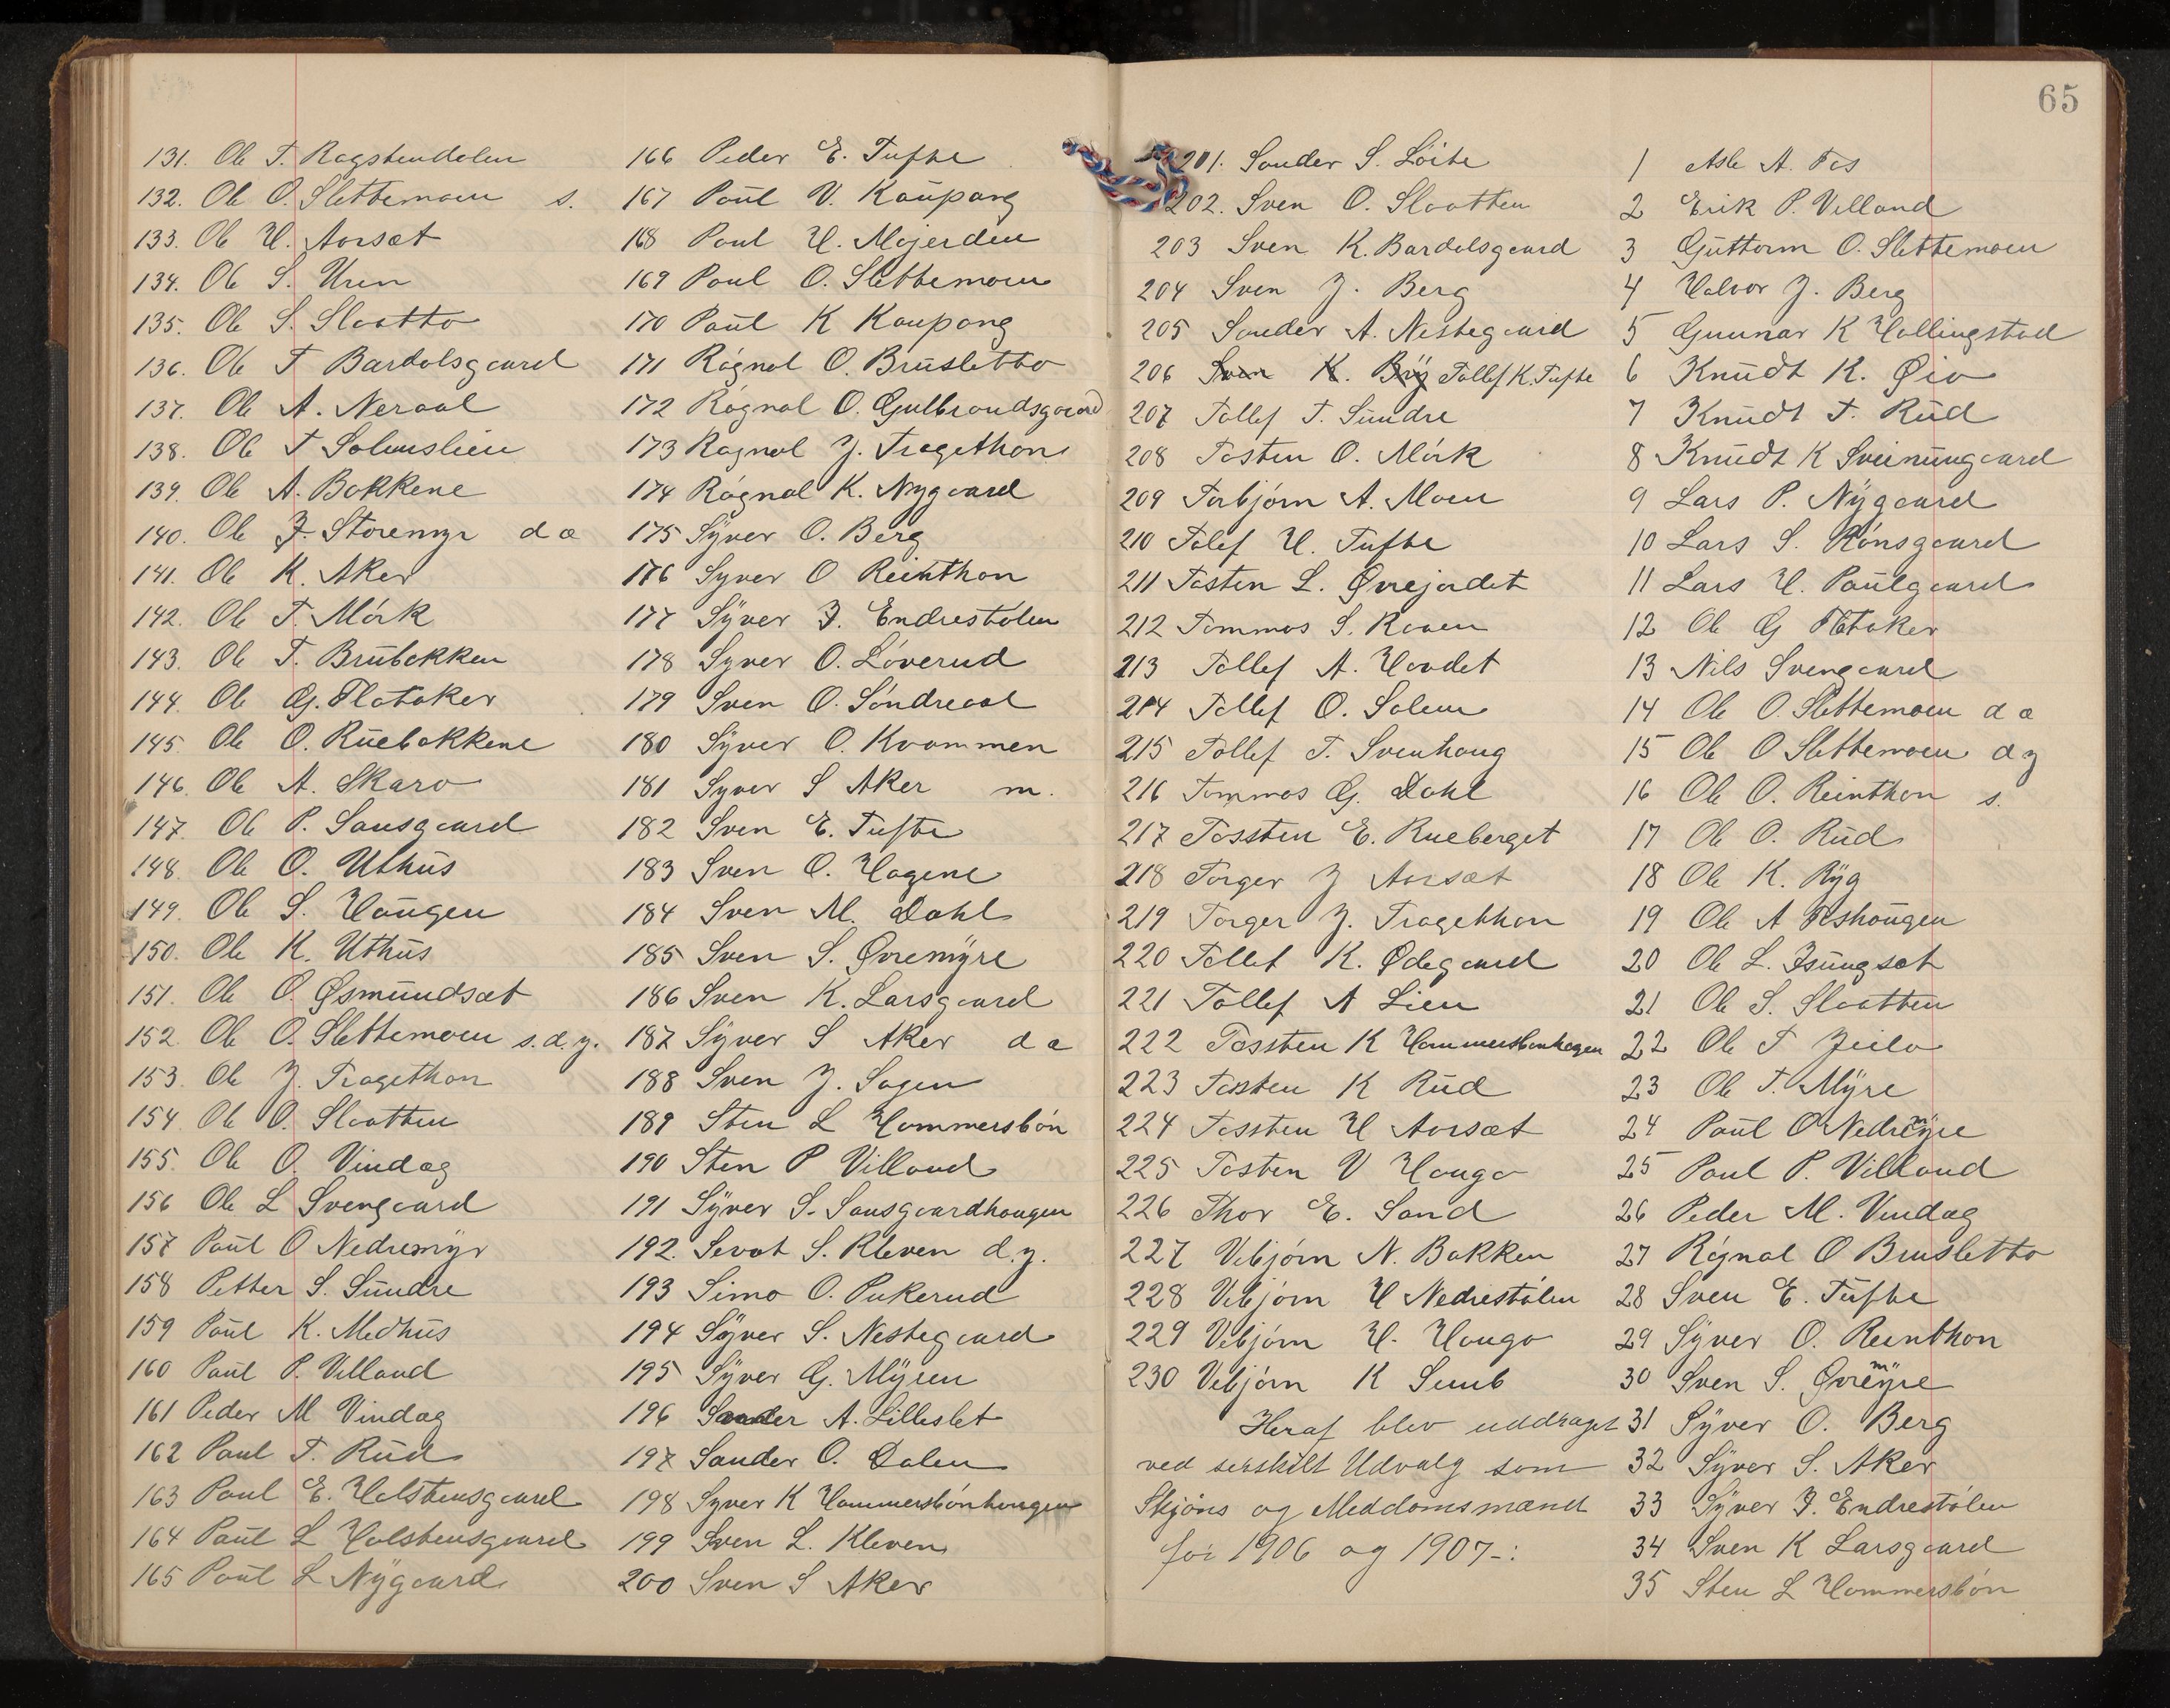 131. Ole T. Ragstendalen
132. Ole O. Slettemoen s.
133. Ole H. Aarsæt
134. Ole S. Uren
135. Ole S. Slaatto
136. Ole T Bardolsgaard
137. Ole A. Neraal
138. Ole T Solemslien
139. Ole A. Bakkene
140. Ole J. Storemyr d æ
141. Ole K. Aker
142. Ole T. Mörk
143. Ole T. Brubakken
144. Ole G. Flataker
145. Ole O. Ruebakkene
146. Ole A. Skaro
147. Ole P. Sausgaard
148. Ole O. Uthus
149. Ole S. Haugen
150. Ole K. Uthus
151. Ole O. Øsmundsæt
152. Ole O. Slettemoen s. d. y.
153. Ole J. Tragethon
154. Ole O. Slaatten
155. Ole O. Vindæg
156 Ole L Svengaard
157 Paul O Nedremyr
158 Petter S. Sundre
159 Paul K. Medhus
160 Paul P. Villand
161 Peder M Vindæg
162 Paul T. Rud
163 Paul E. Holstensgaard
164 Paul L Holstensgaard
165 Paul L Nygaard
166 Peder E. Tufte
167 Paul V. Kaupang
168 Paul H. Mejerden
169 Paul O. Slettemoen
170 Paul K Kaupang
171 Rágnal O. Brusletto
172 Rágnal O. Gulbrandsgaard
173 Ragnal J. Tragethon
174 Rágnal K. Nygaard
175 Syver O. Berg
176 Syver O Reinthon
177 Syver J. Endrestölen
178 Syver O. Löverud
179 Sven O. Söndreaal
180 Syver O. Kvammen
181 Syver S Aker m.
182 Sven E. Tufte
183 Sven O. Hagene
184 Sven M. Dahl
185 Sven S. Øvremyre
186 Sven K. Larsgaard
187 Syver S Aker d æ
188 Sven J. Sagen
189 Sten L Hammersbön
190 Sten P Villand
191 Syver S. Sausgaardhaugen
192. Sevat S. Kleven d. y.
193 Simo O. Pukerud
194 Syver S. Nestegaard
195 Syver G. Myren
196 Sander A. Lilleslet
197 Sander O. Dalen
198 Syver K Hammersbönhaugen
199 Sven L. Kleven
200 Sven S Aker
65
201. Sander S. Löite
202. Sven O. Slaatten
203 Sven K. Bardolsgaard
204 Sven J. Berg
205 Sander A. Nestegaard
206 Sven K. Ryg Tollef K. Tufte
207 Tollef T. Sundre
208 Tosten O. Mörk
209 Torbjörn A. Moen
210 Tolef H. Tufte
211 Tosten L. Øvrejordet
212 Tommas S. Raaen
213 Tollef A. Hovdet
214 Tollef O. Solem
215 Tollef T. Svenhaug
216 Tommas G. Dahl
217 Tossten E. Rueberget
218 Torger J Aarsæt
219 Torger J. Tragethon
220 Tollef K. Ødegaard
221 Tollef A Lien
222 Tossten K Hammersbønhagen
223 Tossten K Rud
224 Tossten H Aarsæt
225 Tosten V Haugo
226 Thor E. Sand
227 Vebjörn N. Bakken
228 Vebjörn H Nedrestölen
229 Vebjörn H. Haugo
230 Vebjörn K
Heraf blev uddraget
ved serskilt Udvalg som
Skjöns og Meddomsmænd
for 1906 og 1907-:
1 Asle A. Fos
2 Erik P. Villand
3 Guttorm O. Slettemoen
4 Halvor J. Berg
5 Gunnar K Hallingstad
6 Knudt K. Øio
7 Knudt T. Rud
8 Knudt K Sveinungaard
9 Lars P. Nygaard
10 Lars S. Rönsgaard
11 Lars H. Paulgaard
12 Ole G Flataker
13 Nils Svengaard
14 Ole O. Slettemoen d æ
15 Ole O Slettemoen d y
16 Ole O. Reinthon s.
17 Ole O. Rud
18 Ole K. Ryg
19 Ole A
20 Ole L. Isungset
21 Ole S. Slaatten
22 Ole T Jeilo
23 Ole T. Myre
24 Paul O Nedremyre
25 Paul P. Villand
26 Peder M. Vindæg
27 Rágnal O Brusletto
28 Sven E. Tufte
29 Syver O. Reinthon
30 Sven S. Øvremyre
31 Syver O. Berg
32 Syver S. Aker
33 Syver J. Endrestölen
34 Sven K Larsgaard
35 Sten L Hammersbön